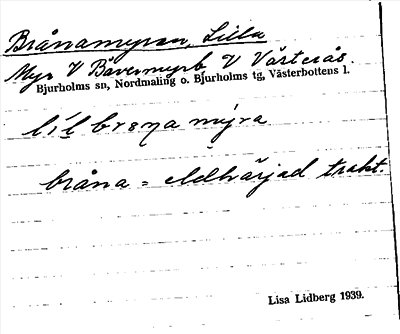 Brånamyran, Lilla
Myr V Bävermyrb V Västerås.
Bjurholms sn, Nordmaling o. Bjurholms tg, Västerbottens l.
líl brɛna mýra
bråna = eldhärjad trakt.
Lisa Lidberg 1939.